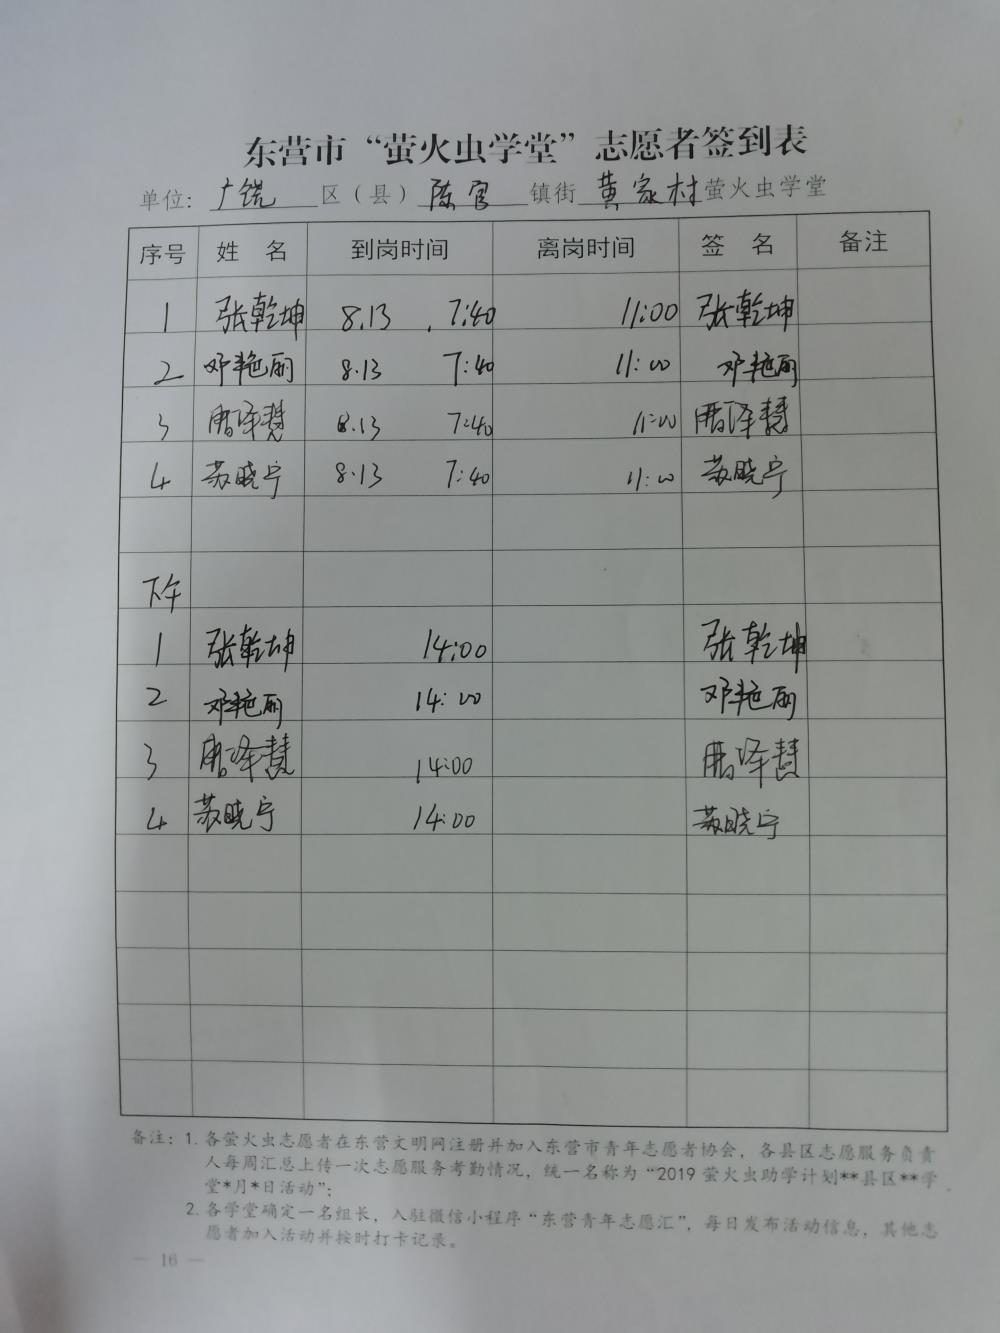 东营市“萤火虫学堂”志愿者签到表
单位：广饶 区（县）陈官 镇街 黄家村 萤火虫学堂
序号 姓 名 到岗时间 离岗时间 签 名 备注
1 张乾坤 8.13 7:40 11:00 张乾坤
2 邓艳丽 8.13 7:40 11:00 邓艳丽
3 曹泽慧 8.13 7:40 11:00 曹泽慧
4 苏晓宁 8.13 7:40 11:00 苏晓宁
下午
1 张乾坤 14:00 张乾坤
2 邓艳丽 14:00 邓艳丽
3 曹泽慧 14:00 曹泽慧
4 苏晓宁 14:00 苏晓宁
备注：1. 各萤火虫志愿者在东营文明网注册并加入东营市青年志愿者协会，各县区志愿服务负责
人每周汇总上传一次志愿服务考勤情况，统一名称为“2019 萤火虫助学计划**县区**学
堂*月*日活动”；
2. 各学堂确定一名组长，入驻微信小程序“东营青年志愿汇”，每日发布活动信息，其他志
愿者加入活动并按时打卡记录。
— 16 —